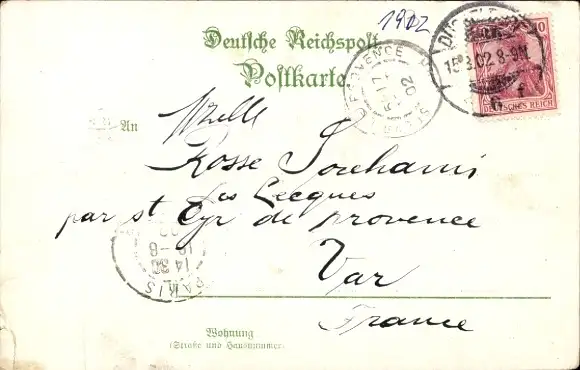 1902
Deutsche Reichspost
Postkarte
PROVENCE
17
02
DÜSSELDORF
15.3.02.8-9N
f
10
DEUTSCHES REICH
An
Mlle
Rosse
Les Lecques
par st Cyr de provence
Var
France
PARIS
14 30
16-6
Wohnung
(Straße und Hausnummer)